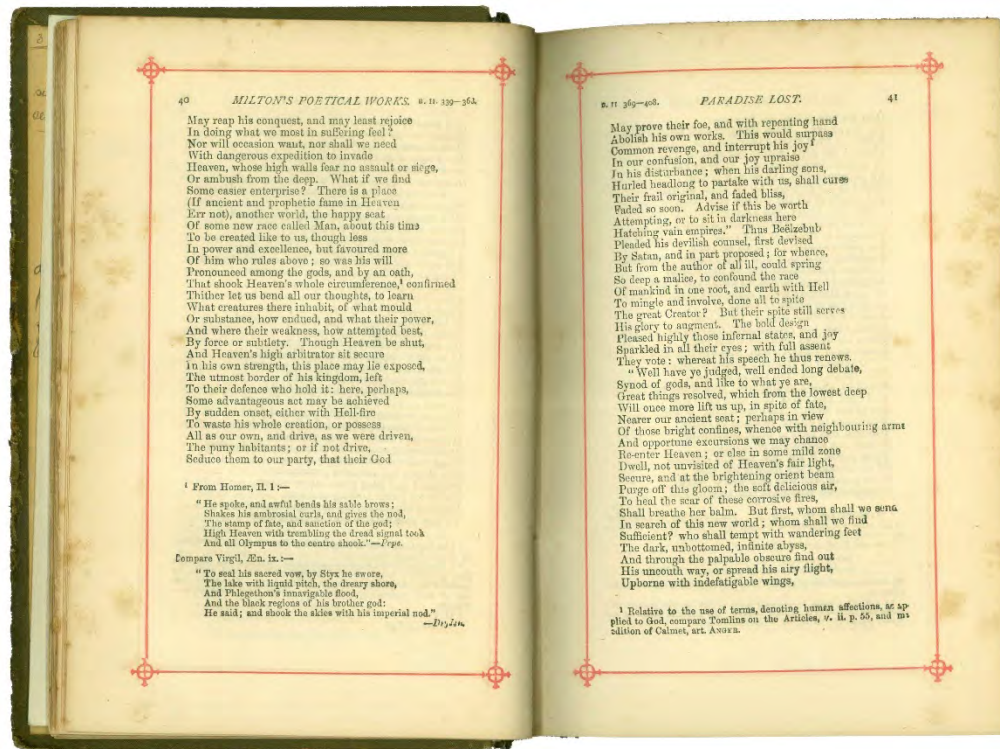 40 MILTON'S POETICAL WORKS. B. II. 339—368.
May reap his conquest, and may least rejoice
In doing what we most in suffering feel?
Nor will occasion want, nor shall we need
With dangerous expedition to invade
Heaven, whose high walls fear no assault or siege,
Or ambush from the deep. What if we find
Some easier enterprise? There is a place
(If ancient and prophetic fame in Heaven
Err not), another world, the happy seat
Of some new race called Man, about this time
To be created like to us, though less
In power and excellence, but favoured more
Of him who rules above; so was his will
Pronounced among the gods, and by an oath,
That shook Heaven's whole circumference,¹ confirmed
Thither let us bend all our thoughts, to learn
What creatures there inhabit, of what mould
Or substance, how endued, and what their power,
And where their weakness, how attempted best,
By force or subtlety. Though Heaven be shut,
And Heaven's high arbitrator sit secure
In his own strength, this place may lie exposed,
The utmost border of his kingdom, left
To their defence who hold it: here, perhaps,
Some advantageous act may be achieved
By sudden onset, either with Hell-fire
To waste his whole creation, or possess
All as our own, and drive, as we were driven,
The puny habitants; or if not drive,
Seduce them to our party, that their God
¹ From Homer, Il. 1:—
"He spoke, and awful bends his sable brows;
Shakes his ambrosial curls, and gives the nod,
The stamp of fate, and sanction of the god;
High Heaven with trembling the dread signal took
And all Olympus to the centre shook."—Pope.
Compare Virgil, Æn. ix.:—
"To seal his sacred vow, by Styx he swore,
The lake with liquid pitch, the dreary shore,
And Phlegethon's innavigable flood,
And the black regions of his brother god:
He said; and shook the skies with his imperial nod."
—Dryden.
B. II 369—408. PARADISE LOST. 41
May prove their foe, and with repenting hand
Abolish his own works. This would surpass
Common revenge, and interrupt his joy¹
In our confusion, and our joy upraise
In his disturbance; when his darling sons,
Hurled headlong to partake with us, shall curse
Their frail original, and faded bliss,
Faded so soon. Advise if this be worth
Attempting, or to sit in darkness here
Hatching vain empires." Thus Beëlzebub
Pleaded his devilish counsel, first devised
By Satan, and in part proposed; for whence,
But from the author of all ill, could spring
So deep a malice, to confound the race
Of mankind in one root, and earth with Hell
To mingle and involve, done all to spite
The great Creator? But their spite still serves
His glory to augment. The bold design
Pleased highly those infernal states, and joy
Sparkled in all their eyes; with full assent
They vote: whereat his speech he thus renews.
"Well have ye judged, well ended long debate,
Synod of gods, and like to what ye are,
Great things resolved, which from the lowest deep
Will once more lift us up, in spite of fate,
Nearer our ancient seat; perhaps in view
Of those bright confines, whence with neighbouring arms
And opportune excursions we may chance
Re-enter Heaven; or else in some mild zone
Dwell, not unvisited of Heaven's fair light,
Secure, and at the brightening orient beam
Purge off this gloom; the soft delicious air,
To heal the scar of these corrosive fires,
Shall breathe her balm. But first, whom shall we send
In search of this new world; whom shall we find
Sufficient? who shall tempt with wandering feet
The dark, unbottomed, infinite abyss,
And through the palpable obscure find out
His uncouth way, or spread his airy flight,
Upborne with indefatigable wings,
¹ Relative to the use of terms, denoting human affections, as ap-
plied to God, compare Tomlins on the Articles, v. ii. p. 55, and my
edition of Calmet, art. ANGER.